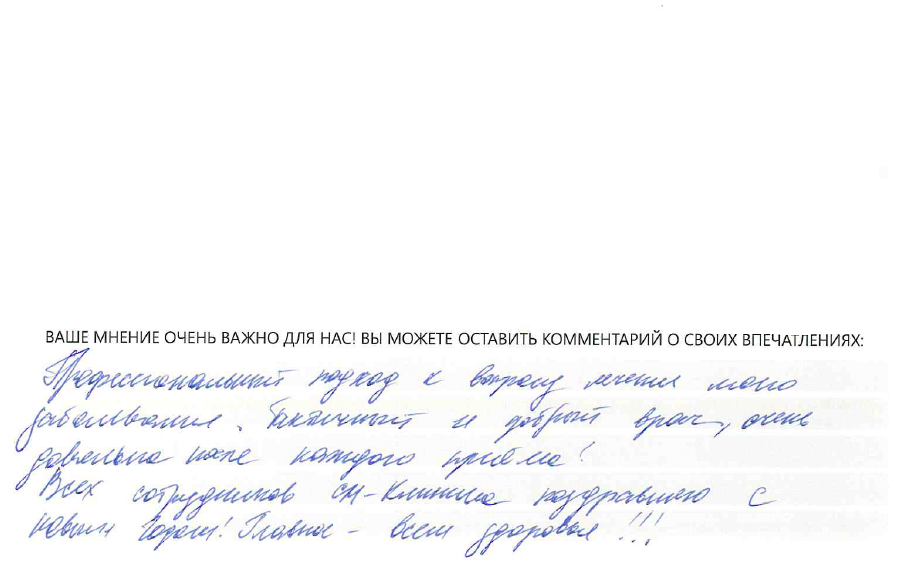 ВАШЕ МНЕНИЕ ОЧЕНЬ ВАЖНО ДЛЯ НАС! ВЫ МОЖЕТЕ ОСТАВИТЬ КОММЕНТАРИЙ О СВОИХ ВПЕЧАТЛЕНИЯХ:
Профессиональный подход к вопросу лечения моего
заболевания. Тактичный и добрый врач, очень
довольна после каждого приёма!
Всех сотрудников СМ-Клиника поздравляю с
новым годом! Главное - всем здоровья!!!